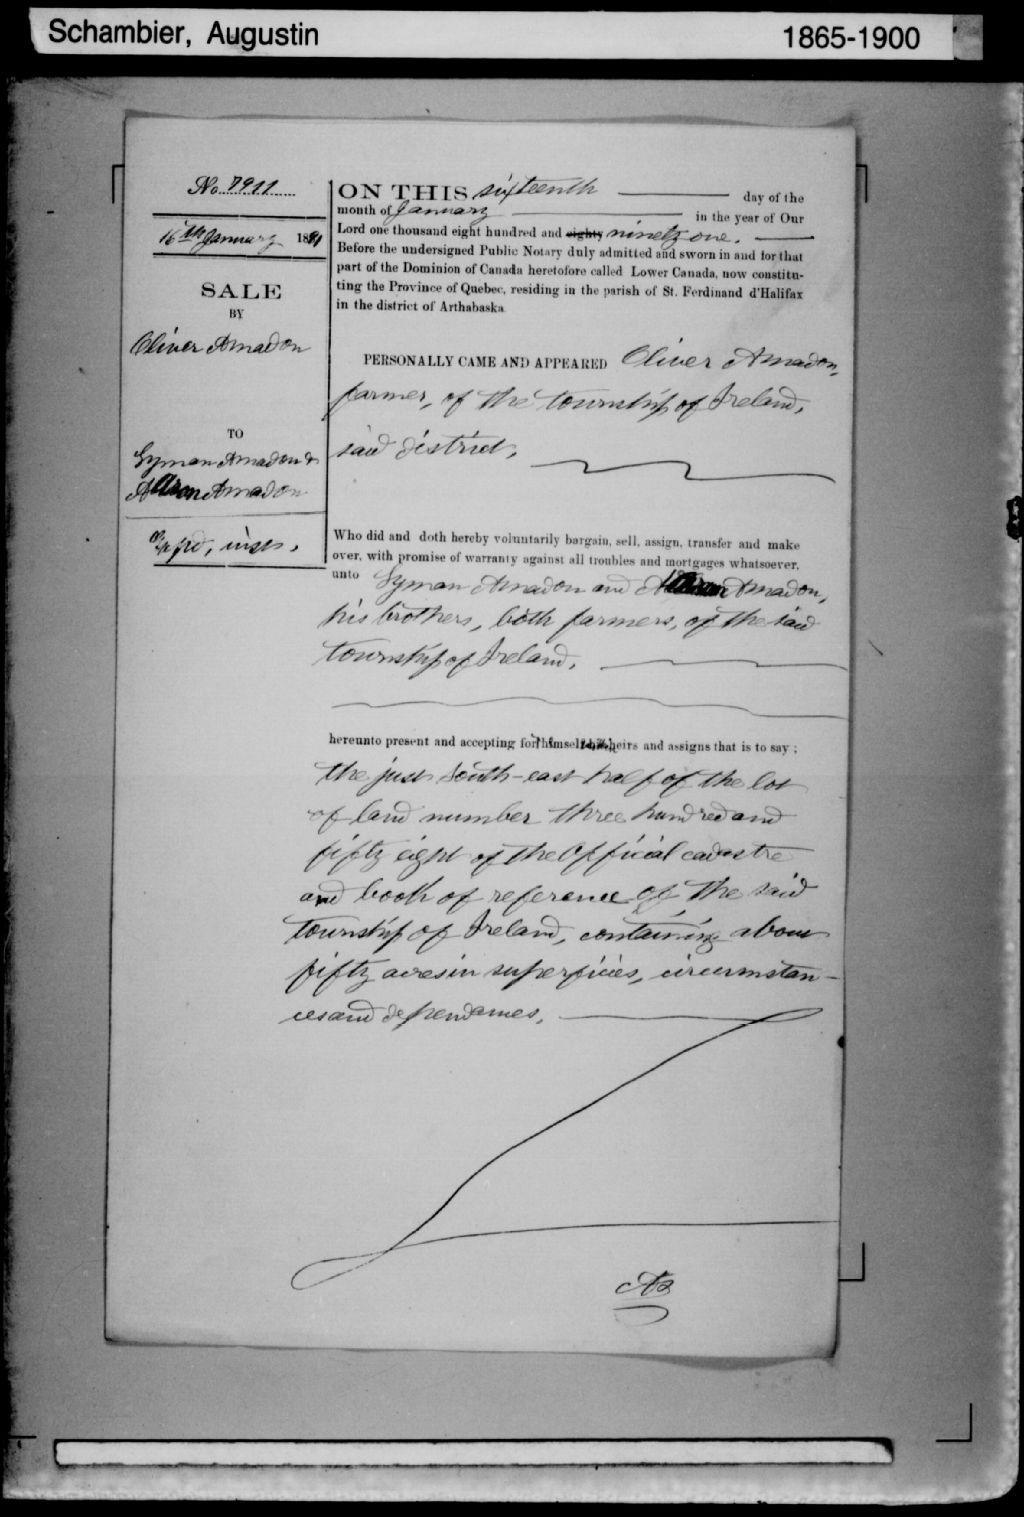 Schambier, Augustin
1865-1900
No 7911
16th January 1891
SALE
BY
Oliver Amadon
TO
Lyman Amadon &
Aaron Amadon
ON THIS sixteenth day of the
month of January in the year of Our
Lord one thousand eight hundred and eighty ninety one.
Before the undersigned Public Notary duly admitted and sworn in and for that
part of the Dominion of Canada heretofore called Lower Canada, now constitu-
ting the Province of Quebec, residing in the parish of St. Ferdinand d'Halifax
in the district of Arthabaska
PERSONALLY CAME AND APPEARED Oliver Amadon,
farmer, of the township of Ireland,
said district,
Who did and doth hereby voluntarily bargain, sell, assign, transfer and make
over, with promise of warranty against all troubles and mortgages whatsoever,
unto Lyman Amadon and Aaron Amadon,
his brothers, both farmers, of the said
township of Ireland,
hereunto present and accepting for himself heirs and assigns that is to say ;
the just south-east half of the lot
of land number three hundred and
fifty eight of the official cadastre
and book of reference of the said
township of Ireland, containing about
fifty acres in superficies, circumstan-
ces and dependances,